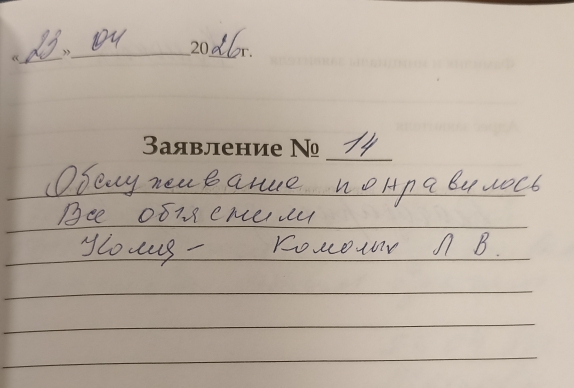 «23» 04 2026г.
Заявление № 14
Обслуживание понравилось
Все объяснили
Л В.